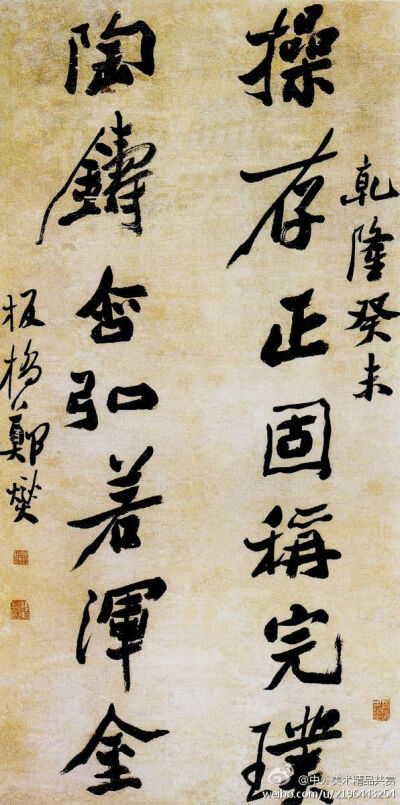 乾隆癸未
操存正固稱完璞
陶鑄含弘若渾金
板橋鄭燮
@中外美术精品共赏
weibo.com/u/2196443254